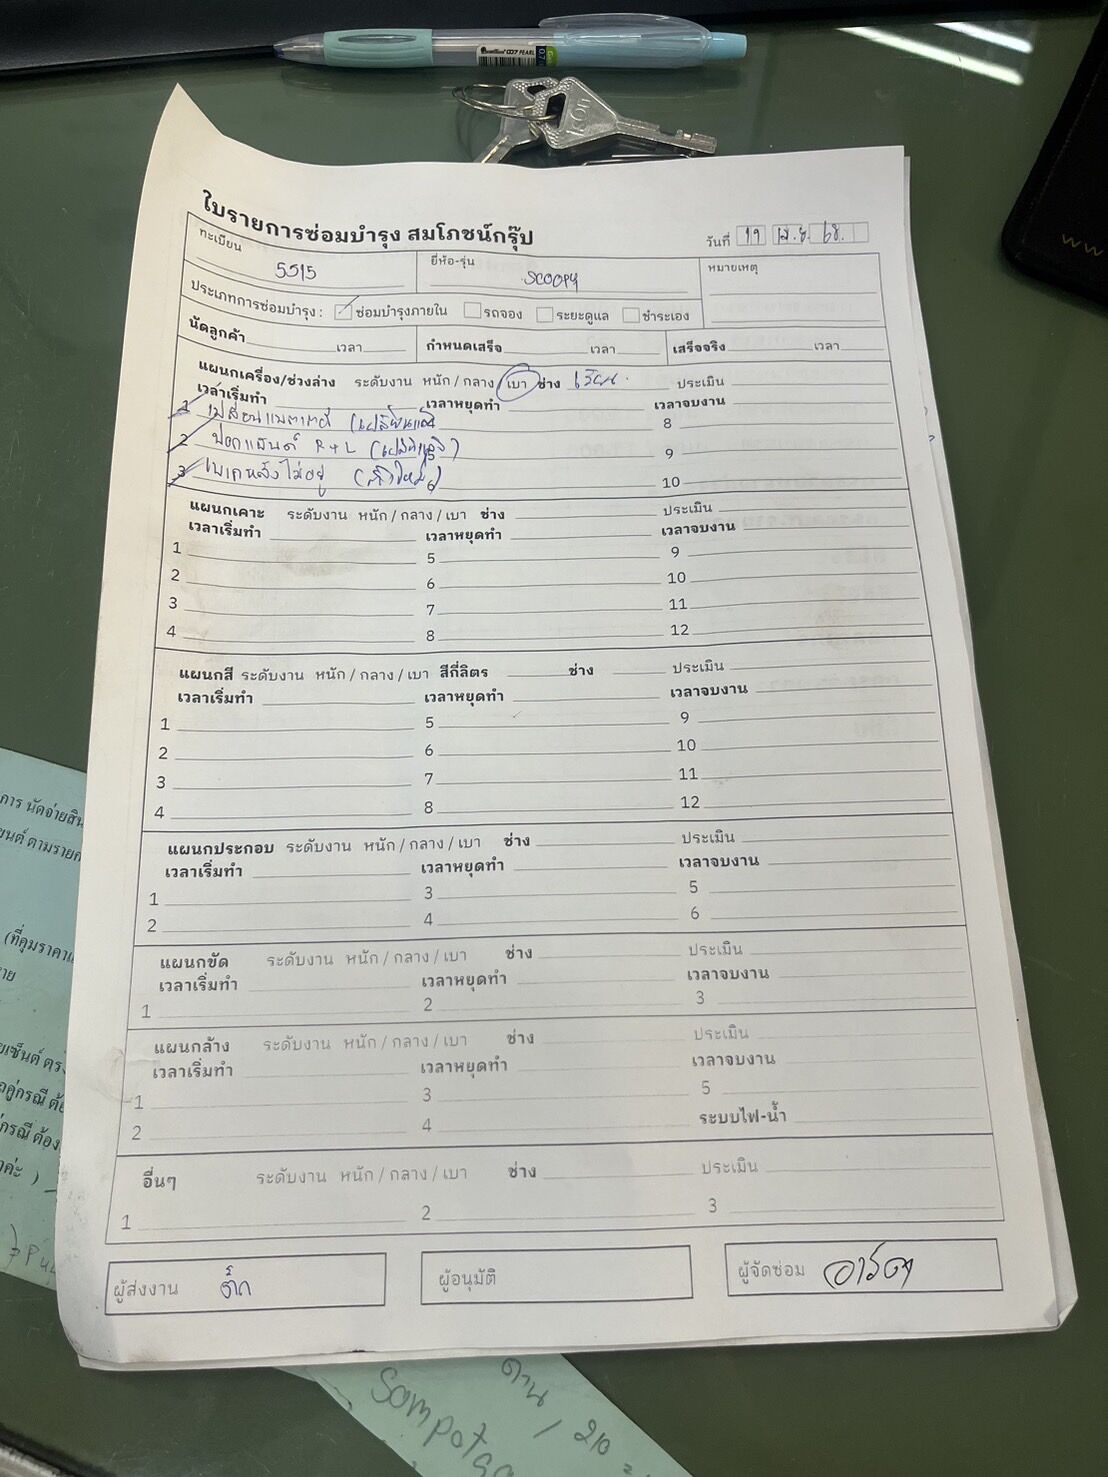 ใบรายการซ่อมบำรุง สมโภชน์กรุ๊ป
วันที่ 19 เม.ย. 68.
ทะเบียน 5515 ยี่ห้อ-รุ่น SCOOPY หมายเหตุ
ประเภทการซ่อมบำรุง : ซ่อมบำรุงภายใน รถจอง ระยะดูแล ชำระเอง
นัดลูกค้า เวลา กำหนดเสร็จ เวลา เสร็จจริง เวลา
แผนกเครื่อง/ช่วงล่าง ระดับงาน หนัก / กลาง / เบา ช่าง ประเมิน
เวลาเริ่มทำ เวลาหยุดทำ เวลาจบงาน
1 เปลี่ยนแบตเตอรี่ 8
2 ปอกแฮนด์ R+L 9
3 เบรกหลังไม่อยู่ 6 10
แผนกเคาะ ระดับงาน หนัก / กลาง / เบา ช่าง ประเมิน
เวลาเริ่มทำ เวลาหยุดทำ เวลาจบงาน
1 5 9
2 6 10
3 7 11
4 8 12
แผนกสี ระดับงาน หนัก / กลาง / เบา สีกี่ลิตร ช่าง ประเมิน
เวลาเริ่มทำ เวลาหยุดทำ เวลาจบงาน
1 5 9
2 6 10
3 7 11
4 8 12
แผนกประกอบ ระดับงาน หนัก / กลาง / เบา ช่าง ประเมิน
เวลาเริ่มทำ เวลาหยุดทำ เวลาจบงาน
1 3 5
2 4 6
แผนกขัด ระดับงาน หนัก / กลาง / เบา ช่าง ประเมิน
เวลาเริ่มทำ เวลาหยุดทำ เวลาจบงาน
1 2 3
แผนกล้าง ระดับงาน หนัก / กลาง / เบา ช่าง ประเมิน
เวลาเริ่มทำ เวลาหยุดทำ เวลาจบงาน
1 3 5
2 4 ระบบไฟ-น้ำ
อื่นๆ ระดับงาน หนัก / กลาง / เบา ช่าง ประเมิน
1 2 3
ผู้ส่งงาน ผู้อนุมัติ ผู้จัดซ่อม
การ นัดจ่ายสิน
ยนต์ ตามรายก
(ที่คุมราคา
ขาย
ต้อง
ค่ะ )
ด้าน / 210
Sompot